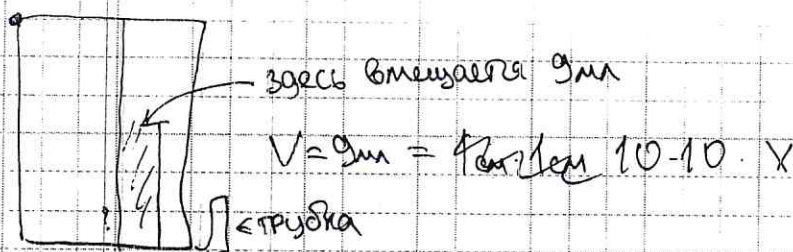 здесь вмещается 9мл
V = 9мл = 10·10· X
?
трубка